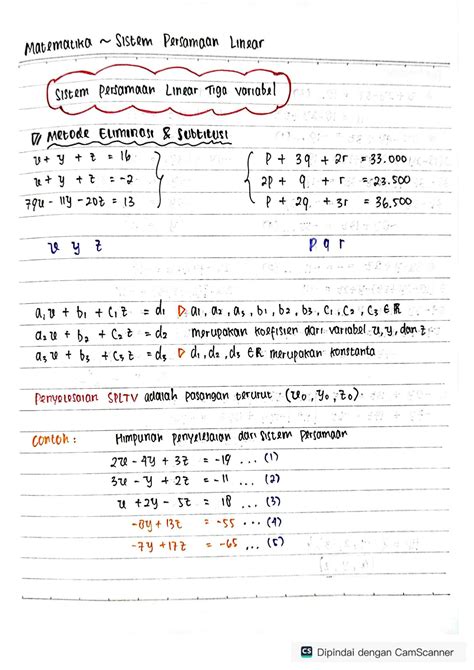 Matematika ~ Sistem Persamaan Linear
Sistem Persamaan Linear Tiga Variabel
Metode Eliminasi & Subtitusi
x + y + z = 16
x + y + z = -2
79x - 11y - 20z = 13
P + 3q + 2r = 33.000
2P + q + r = 23.500
P + 2q + 3r = 36.500
x y z
P q r
a₁x + b₁ + C₁z = d₁ ▷ a₁, a₂, a₃, b₁, b₂, b₃, C₁, C₂, C₃ ∈ R
a₂x + b₂ + C₂z = d₂ merupakan koefisien dari variabel x, y, dan z
a₃x + b₃ + C₃z = d₃ ▷ d₁, d₂, d₃ ∈ R merupakan konstanta
Penyelesaian SPLTV adalah pasangan terurut (x₀, y₀, z₀).
Contoh : Himpunan penyelesaian dari sistem persamaan
2x - 4y + 3z = -19 ... (1)
3x - y + 2z = -11 ... (2)
x + 2y - 5z = 18 ... (3)
-8y + 13z = -55 ... (4)
-7y + 17z = -65 ... (5)
CS Dipindai dengan CamScanner